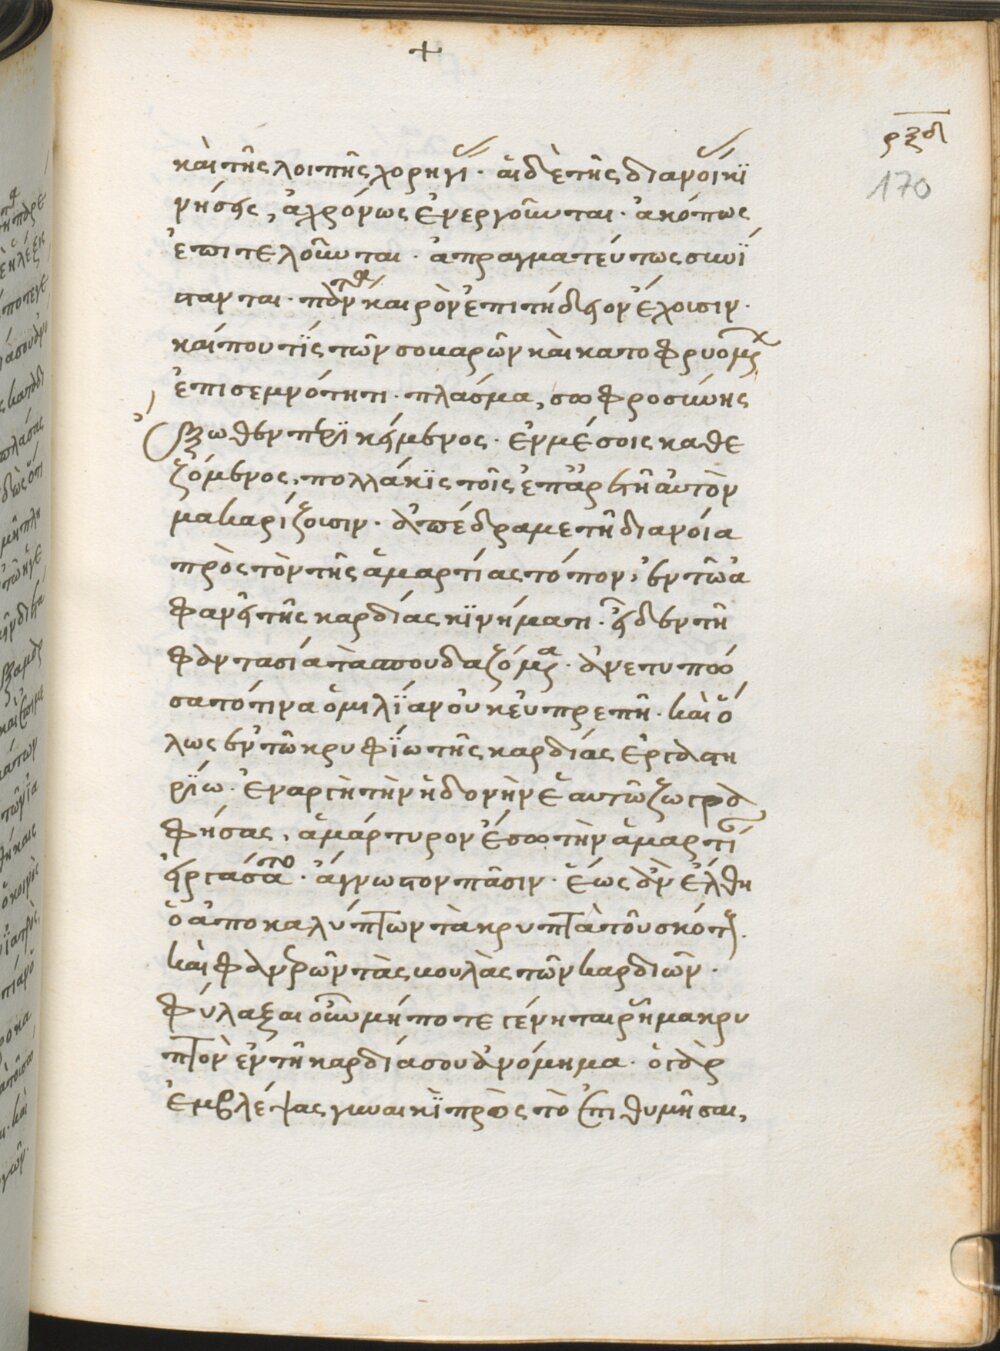 +
ρξδ
170
καὶ τῆς λοιπῆς χορηγί· αἱ δὲ τῆς διανοί κϊ
νήσεις, ἀχρόνως ἐνεργοῦνται· ἀκόπως
ἐπιτελοῦνται· ἀπραγματεύτως συνΐ
στανται· πάντα καιρὸν ἐπιτήδειον ἔχουσιν·
καί που τίς τῶν σοβαρῶν καὶ κατοφρυομ
ἐπισεμνότητι· πλάσμα, σωφροσύνης
ἔξωθεν περϊκείμενος· ἐν μέσοις καθε
ζόμενος, πολλάκϊς τοῖς ἐπ' ἀρετῆ αὐτὸν
μακαρίζουσιν· ἀπέδραμε τῆ διανοία
πρὸς τὸν τῆς ἁμαρτίας τόπον, ἐν τῶ ἀ
φανεῖ τῆς καρδίας κϊνήματι· εἶδεν τῆ
φαντασία τὰ σπουδαζόμα· ἀνετυπώ
σατό τινα ὁμιλΐαν οὐκ εὐπρεπῆ· καὶ ὅ
λως ἐν τῶ κρυφΐω τῆς καρδίας ἐργαστη
ρΐω· ἐναργῆ τὴν ἡδονὴν ἑαυτῶ ζωγρα
φήσας, ἀμάρτυρον ἔσω τὴν ἁμαρτί
εἰργάσατο· ἄγνωστον πᾶσιν· ἕως ἂν ἔλθη
ὁ ἀποκαλύπτων τὰ κρυπτὰ τοῦ σκότους·
καὶ φανερῶν τὰς βουλὰς τῶν καρδιῶν·
φύλαξαι οὖν μήποτε γένηται ῥῆμα κρυ
πτὸν ἐν τῆ καρδία σου ἀνόμημα· ὁ γὰρ
ἐμβλέψας γυναικῒ πρὸς τὸ ἐπιθυμῆσαι,